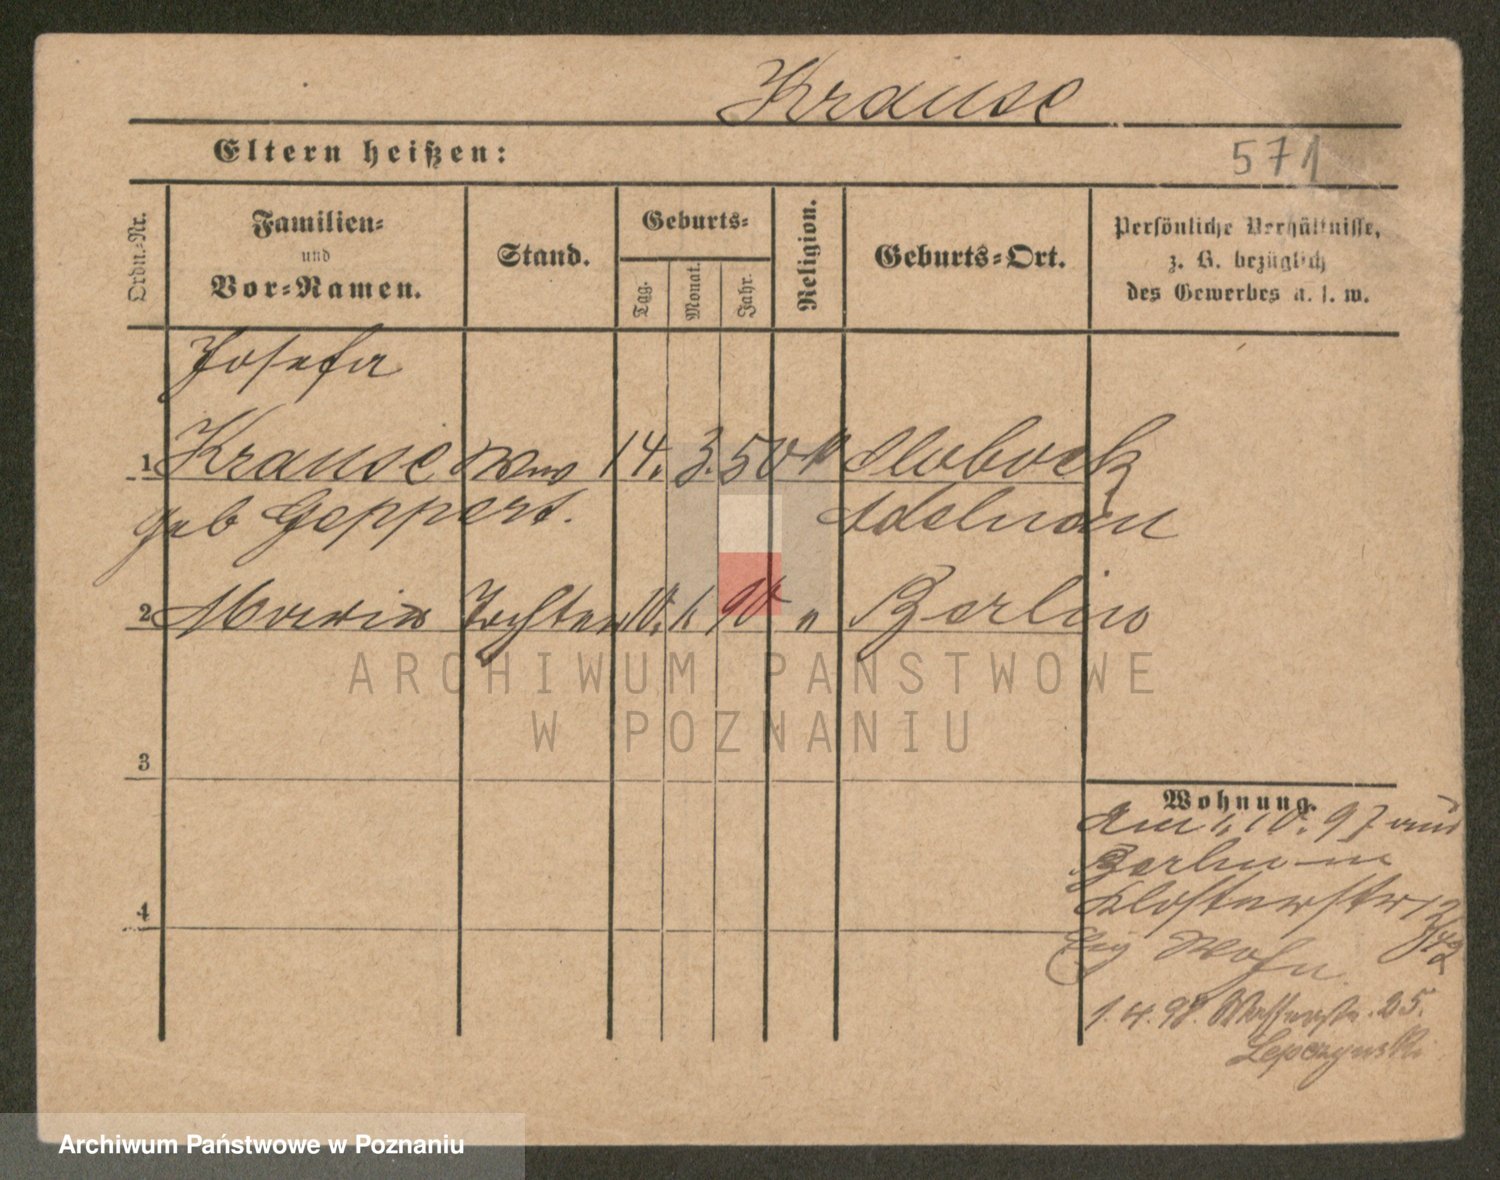 Krause
Eltern heißen:
571
Ordn.-Nr.
Familien-
und
Vor-Namen.
Stand.
Geburts-
Tag.
Monat.
Jahr.
Religion.
Geburts-Ort.
Persönliche Verhältnisse,
z. B. bezüglich
des Gewerbes u. s. w.
Josefa
1 Krause Wwe 14. 3. 50 k
geb Geppert. Adelnau
2 Maria Tochter 10. 1. 90 " Berlin
ARCHIWUM PAŃSTWOWE
W POZNANIU
3
Wohnung.
Am 1. 10. 97 aus
Berlin in
Klosterstr
4
Eig Wohn
1. 4. 98. Wasserstr. 25.
Lepczynski
Archiwum Państwowe w Poznaniu